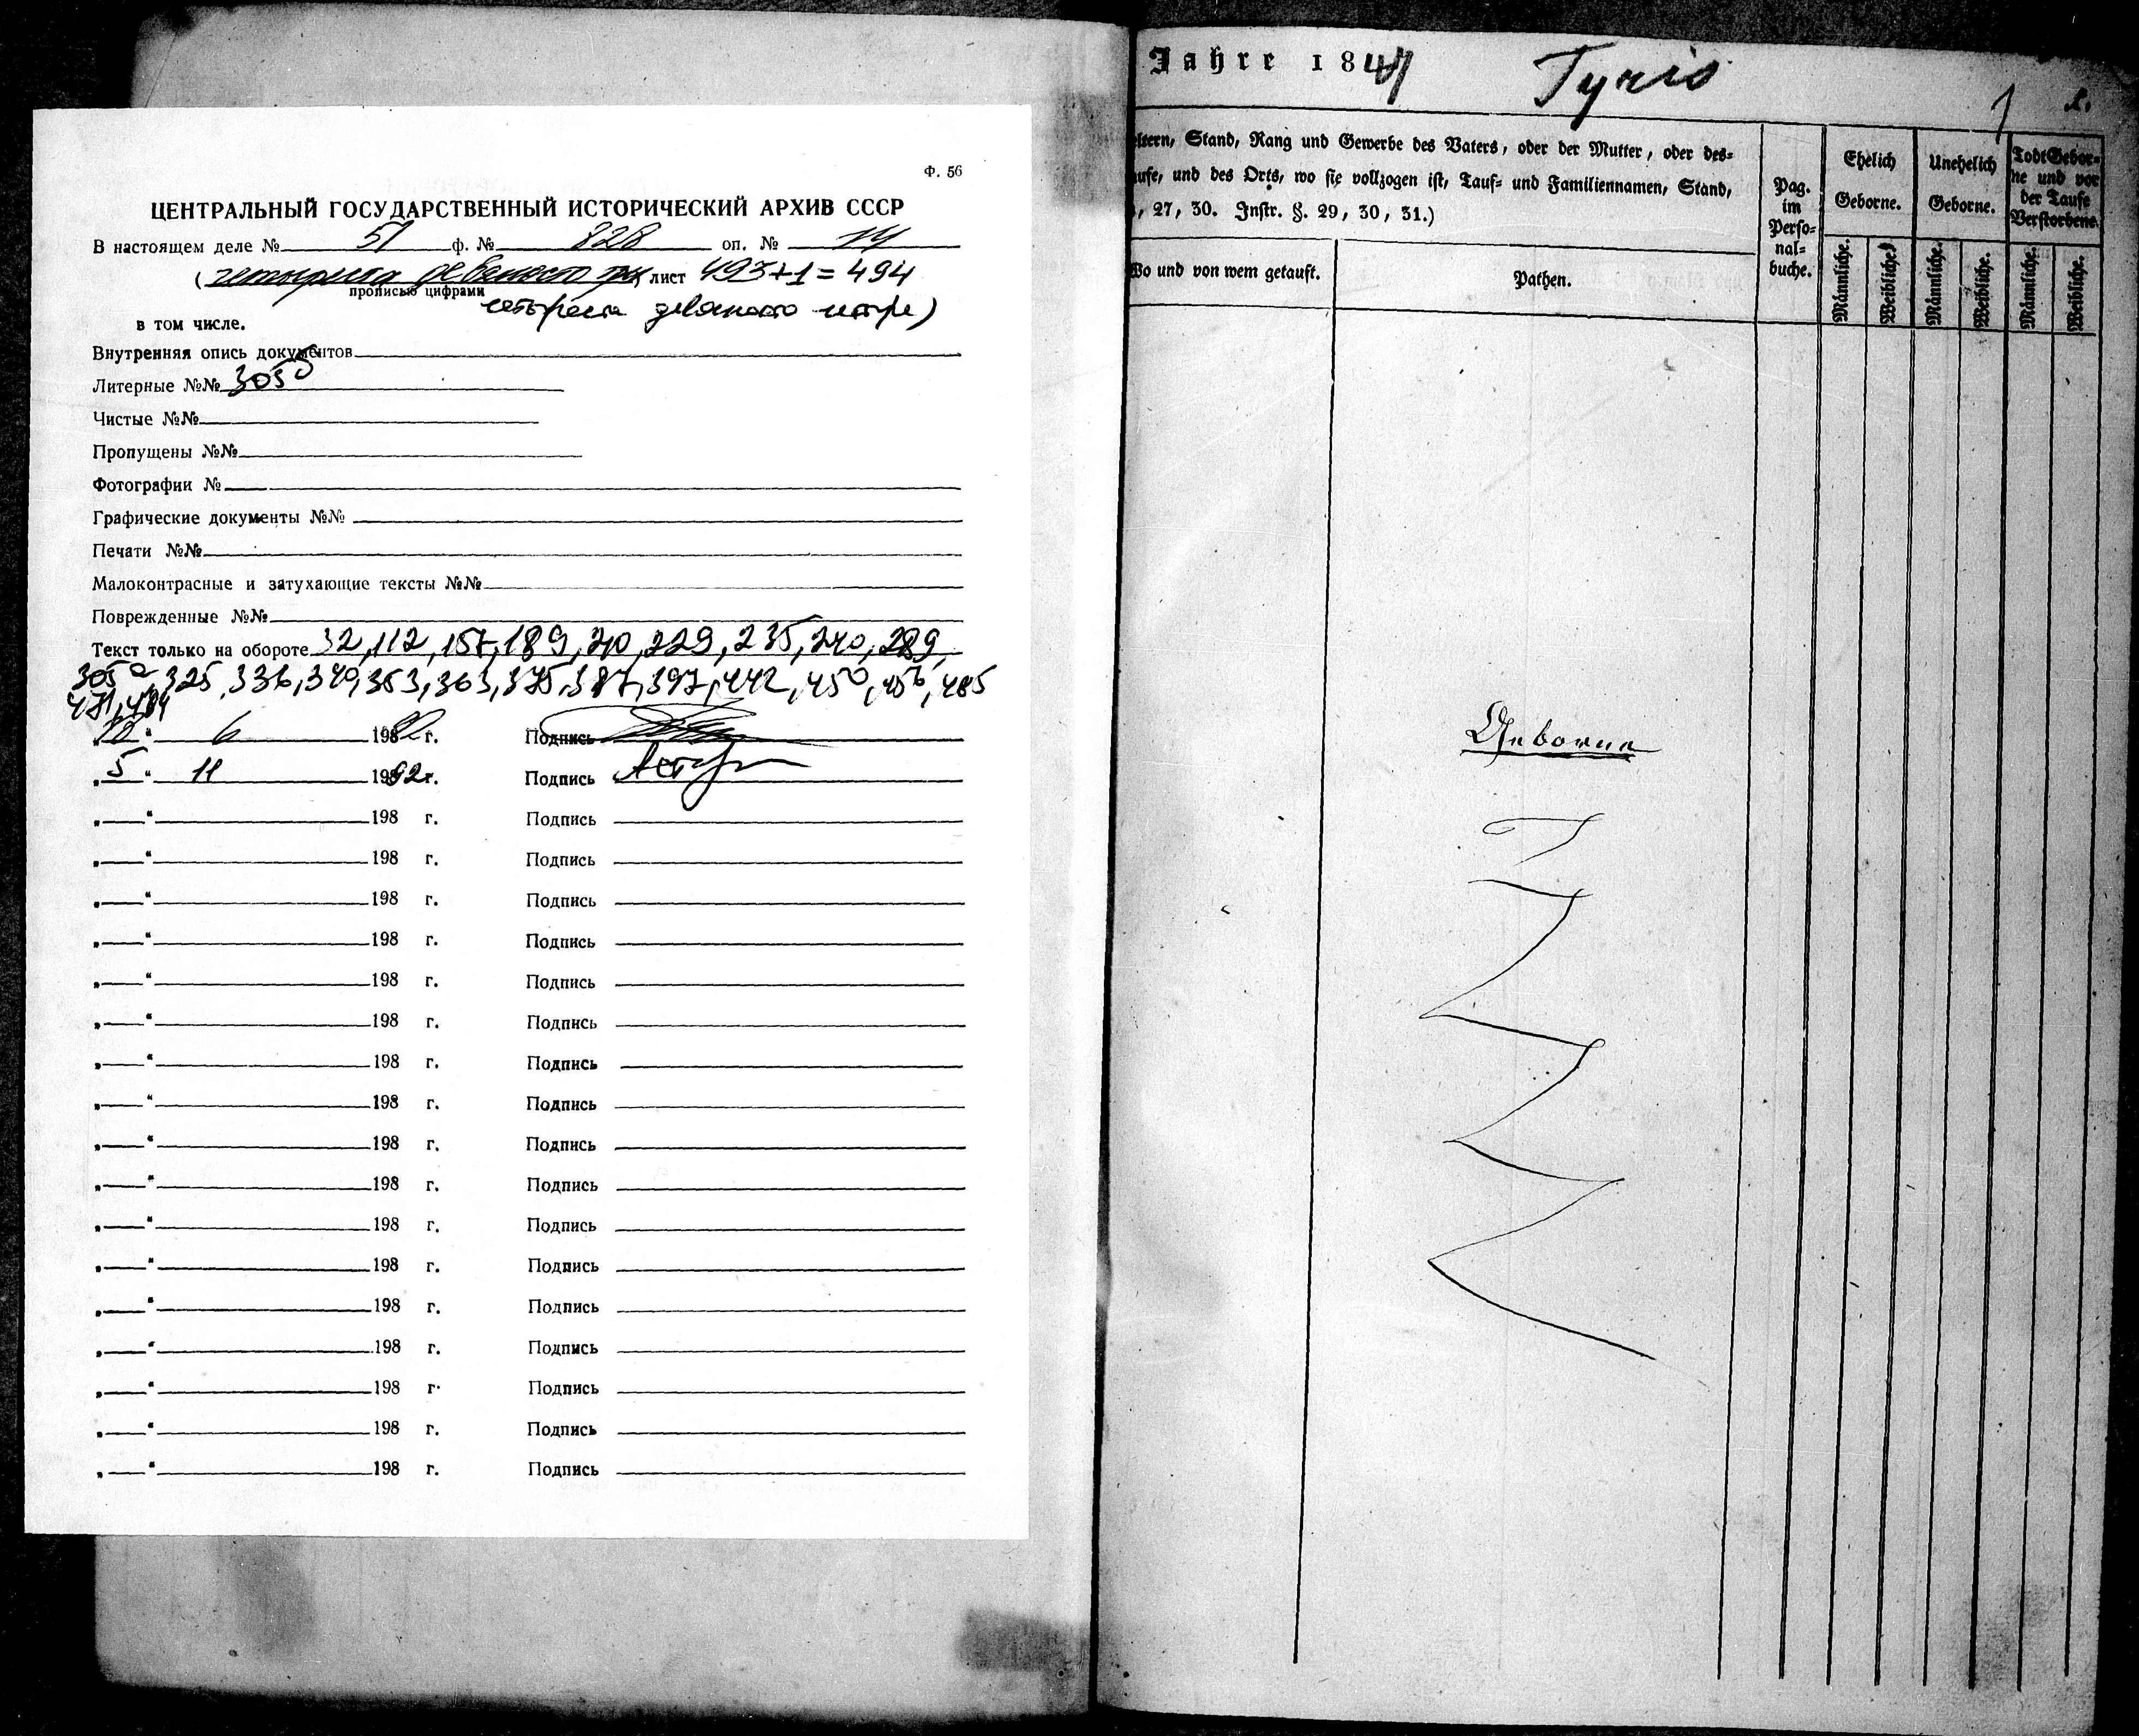 Ф. 56
ЦЕНТРАЛЬНЫЙ ГОСУДАРСТВЕННЫЙ ИСТОРИЧЕСКИЙ АРХИВ СССР
В настоящем деле № 51 ф. № 828 оп. № 14
(четыреста девяносто три лист 493+1=494
прописью цифрами
четыреста девяносто четыре)
в том числе.
Внутренняя опись документов
Литерные №№ 305
Чистые №№
Пропущены №№
Фотографии №
Графические документы №№
Печати №№
Малоконтрасные и затухающие тексты №№
Поврежденные №№
Текст только на обороте 32, 112, 157, 189, 210, 229, 235, 240, 289,
305а, 325, 336, 349, 353, 363, 375, 387, 397, 442, 450, 456, 465
471, 484
6 198 г. Подпись
„5“ 11 1992г. Подпись
„ “ 198 г. Подпись
„ “ 198 г. Подпись
„ “ 198 г. Подпись
„ “ 198 г. Подпись
„ “ 198 г. Подпись
„ “ 198 г. Подпись
„ “ 198 г. Подпись
„ “ 198 г. Подпись
„ “ 198 г. Подпись
„ “ 198 г. Подпись
„ “ 198 г. Подпись
„ “ 198 г. Подпись
„ “ 198 г. Подпись
„ “ 198 г. Подпись
„ “ 198 г. Подпись
„ “ 198 г. Подпись
„ “ 198 г. Подпись
Jahre 1847 Tyris
1
eltern, Stand, Rang und Gewerbe des Vaters, oder der Mutter, oder des=
aufe, und des Orts, wo sie vollzogen ist, Tauf= und Familiennamen, Stand,
, 27, 30. Instr. §. 29, 30, 31.)
Wo und von wem getauft.
Pathen.
Pag.
im
Perso=
nal=
buche.
Ehelich
Geborne.
Unehelich
Geborne.
Todt Gebor=
ne und vor
der Taufe
Verstorbene.
Männliche.
Weibliche.
Männliche.
Weibliche.
Männliche.
Weibliche.
Geborne